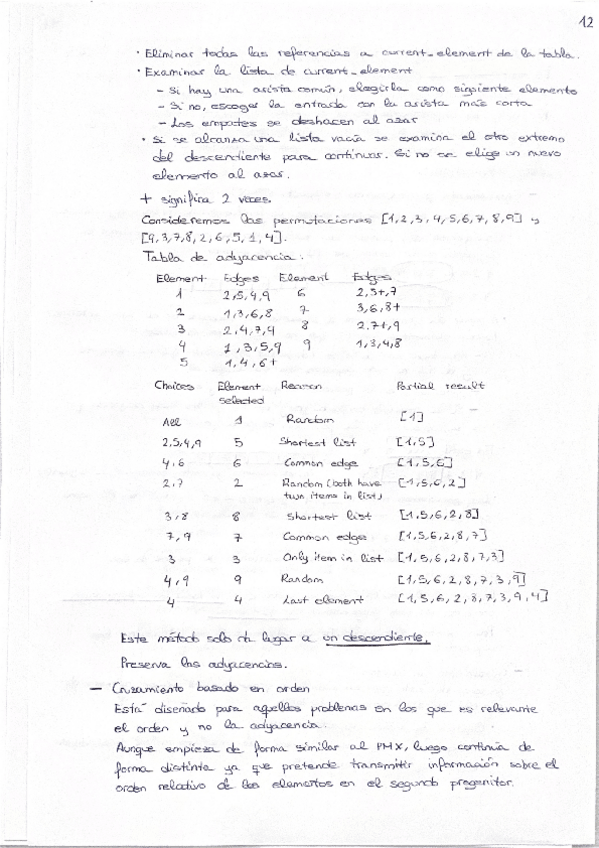 12
· Eliminar todas las referencias a current-element de la tabla.
· Examinar la lista de current-element
– Si hay una arista común, elegirla como siguiente elemento
– Si no, escoger la entrada con la arista más corta
– Los empates se deshacen al azar
· Si se alcanza una lista vacía se examina el otro extremo
del descendiente para continuar. Si no se elige un nuevo
elemento al azar.
+ significa 2 veces.
Consideremos las permutaciones [1,2,3,4,5,6,7,8,9] y
[9,3,7,8,2,6,5,1,4].
Tabla de adyacencia:
Element Edges Element Edges
1 2,5,4,9 6 2,5+,7
2 1,3,6,8 7 3,6,8+
3 2,4,7,9 8 2,7+,9
4 1,3,5,9 9 1,3,4,8
5 1,4,6+
Choices Element selected Reason Partial result
All 1 Random [1]
2,5,4,9 5 Shortest list [1,5]
4,6 6 Common edge [1,5,6]
2,7 2 Random (both have two items in list) [1,5,6,2]
3,8 8 Shortest list [1,5,6,2,8]
7,9 7 Common edge [1,5,6,2,8,7]
3 3 Only item in list [1,5,6,2,8,7,3]
4,9 9 Random [1,5,6,2,8,7,3,9]
4 4 Last element [1,5,6,2,8,7,3,9,4]
Este método solo da lugar a un descendiente.
Preserva las adyacencias.
– Cruzamiento basado en orden
Está diseñado para aquellos problemas en los que es relevante
el orden y no la adyacencia.
Aunque empieza de forma similar al PMX, luego continúa de
forma distinta ya que pretende transmitir información sobre el
orden relativo de los elementos en el segundo progenitor.